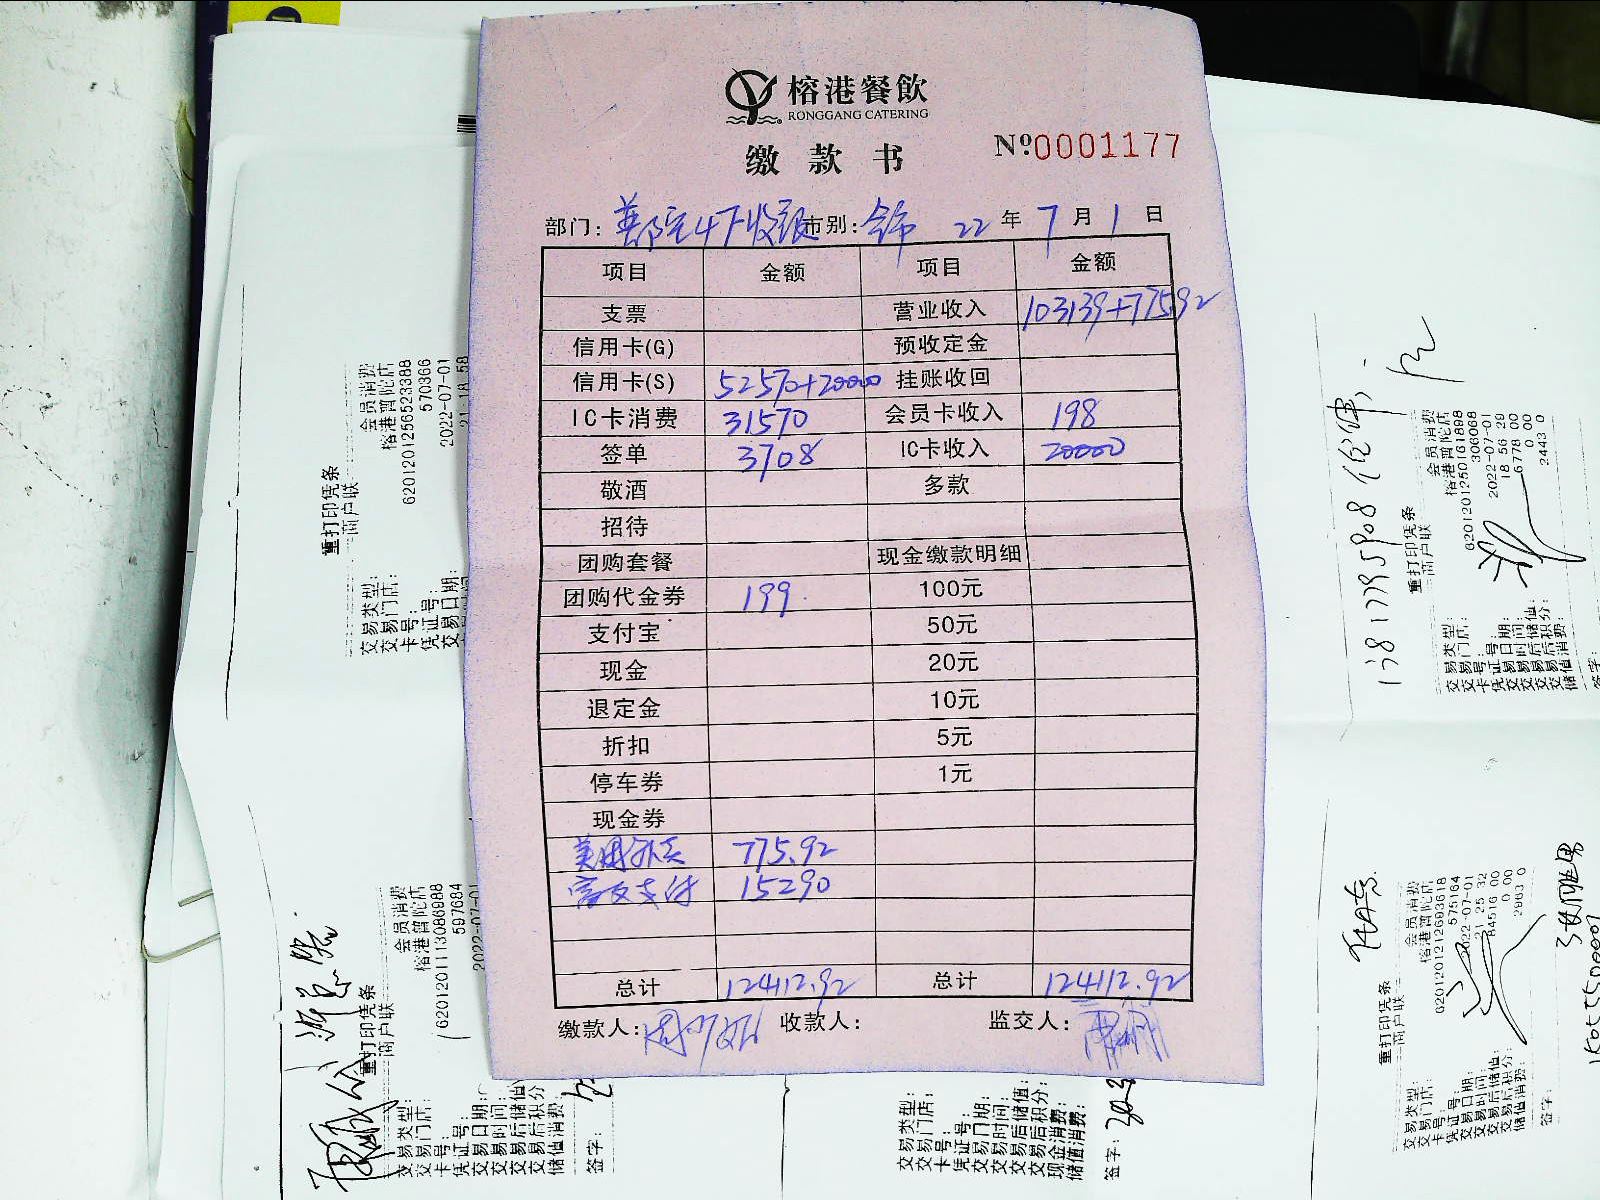 榕港餐飲
RONGGANG CATERING
缴款书
№0001177
部门: 市别: 22 年 7 月 1 日
项目 金额 项目 金额
支票 营业收入 103139+775.92
信用卡(G) 预收定金
信用卡(S) 52570+20000 挂账收回
IC卡消费 31570 会员卡收入 198
签单 3708 IC卡收入 20000
敬酒 多款
招待
团购套餐 现金缴款明细
团购代金券 199 100元
支付宝 50元
现金 20元
退定金 10元
折扣 5元
停车券 1元
现金券
美团外卖 775.92
支付 15290
总计 124112.92 总计 124112.92
缴款人: 收款人: 监交人:
重打印凭条
商户联
交易类型: 会员消费
交易门店: 榕港普陀店
卡号: 6201201256523388
凭证号: 570366
交易日期: 2022-07-01
21 18 58
重打印凭条
商户联
交易类型: 会员消费
交易门店: 榕港普陀店
卡号: 6201201113086988
凭证号: 597684
交易日期: 2022-07-01
交易时间:
交易后储值:
交易后积分:
储值消费:
签字:
交易类型:
交易门店:
卡号:
凭证号:
交易日期:
交易时间:
交易后储值:
交易后积分:
现金消费:
储值消费:
签字:
重打印凭条
商户联
交易类型: 会员消费
交易门店: 榕港普陀店
卡号: 6201201250161898
凭证号: 306068
交易日期: 2022-07-01
交易时间: 18 56 29
交易后储值: 6778 00
交易后积分: 0.00
储值消费: 2443 0
签字:
重打印凭条
商户联
交易类型: 会员消费
交易门店: 榕港普陀店
卡号: 6201201212693618
凭证号: 575164
交易日期: 2022-07-01
交易时间: 21 25 32
交易后储值: 84516 00
交易后积分: 0.00
储值消费: 2983 0
签字: